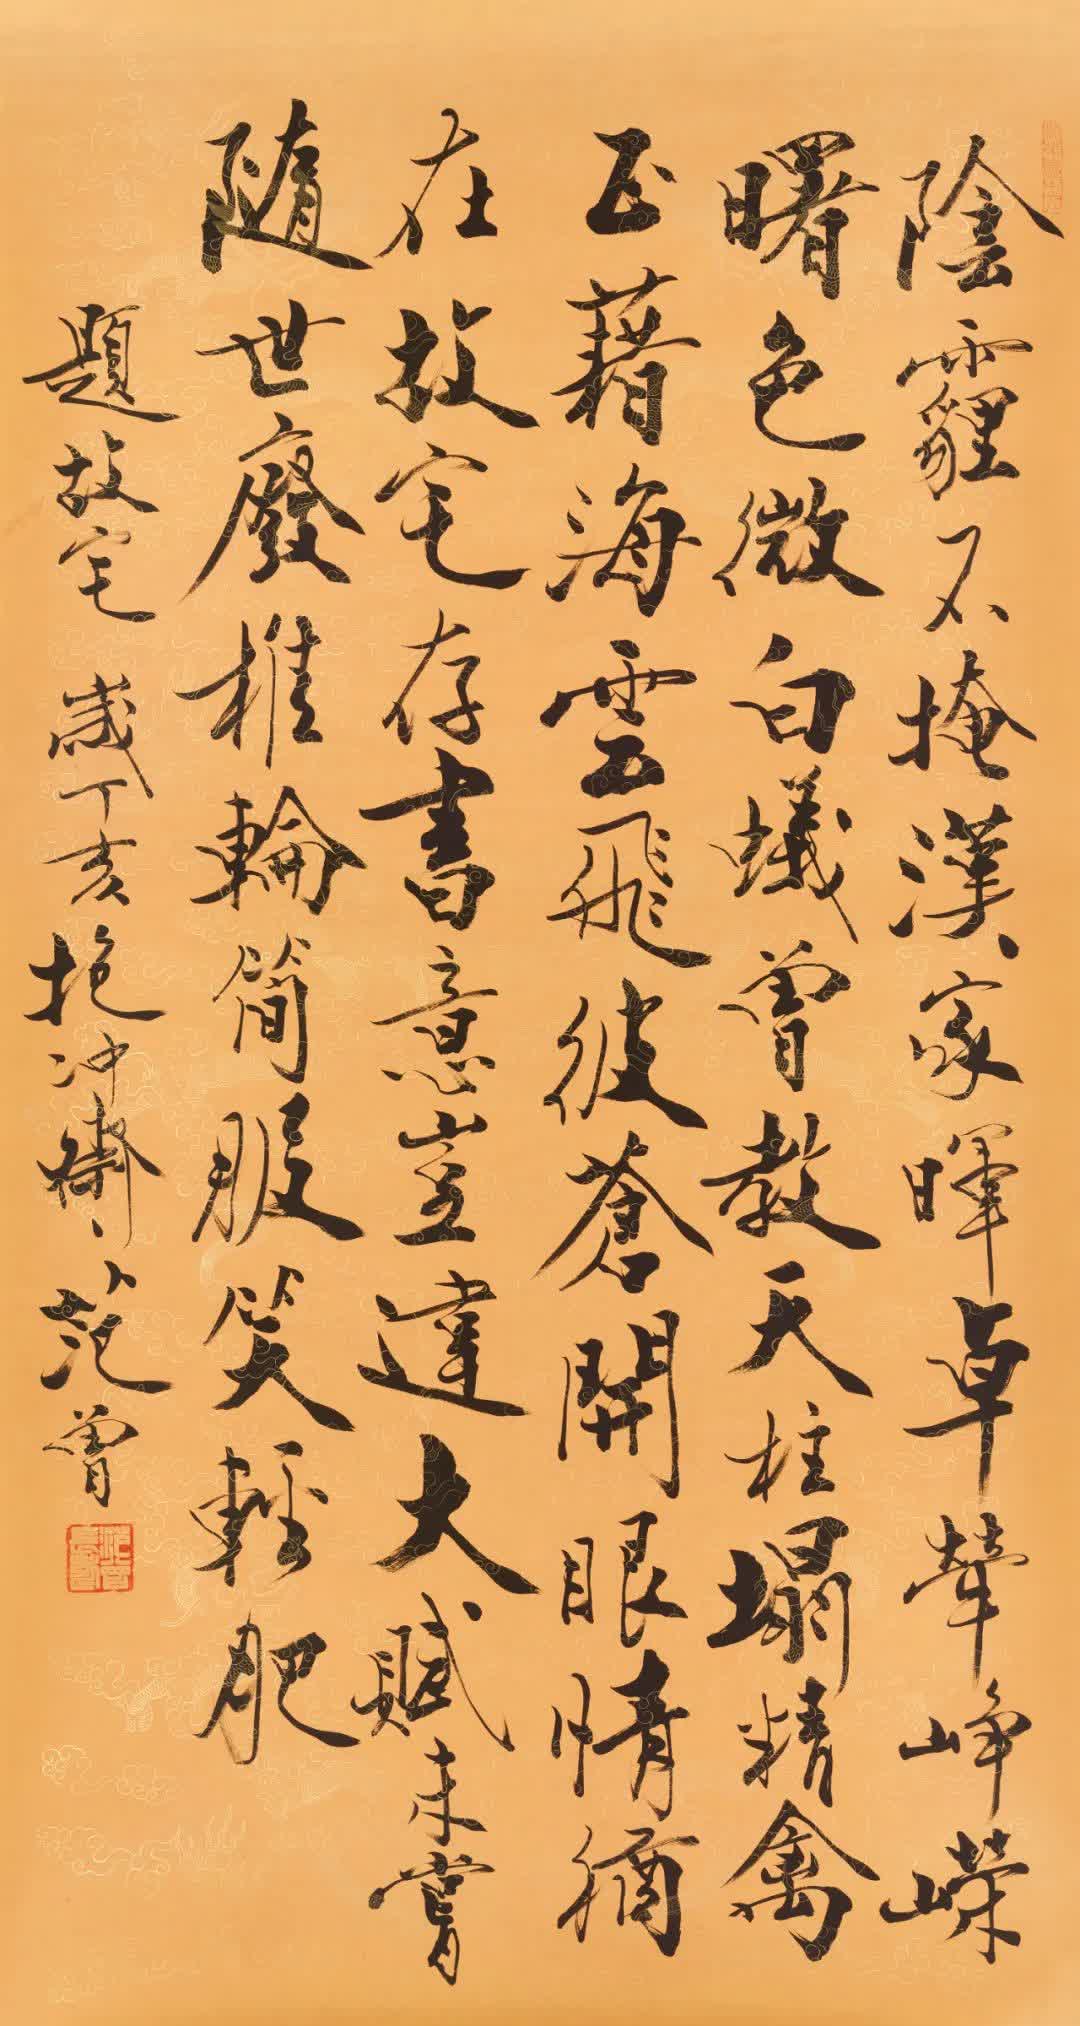 陰霾不掩漢家暉卓犖崢嶸
曙色微白蟻曾教天柱塌精禽
正藉海雲飛彼蒼開眼情猶
在故宅存書意豈違大賦未嘗
隨世廢椎輪簡服笑輕肥
題故宅 歲丁亥抱冲齋范曾